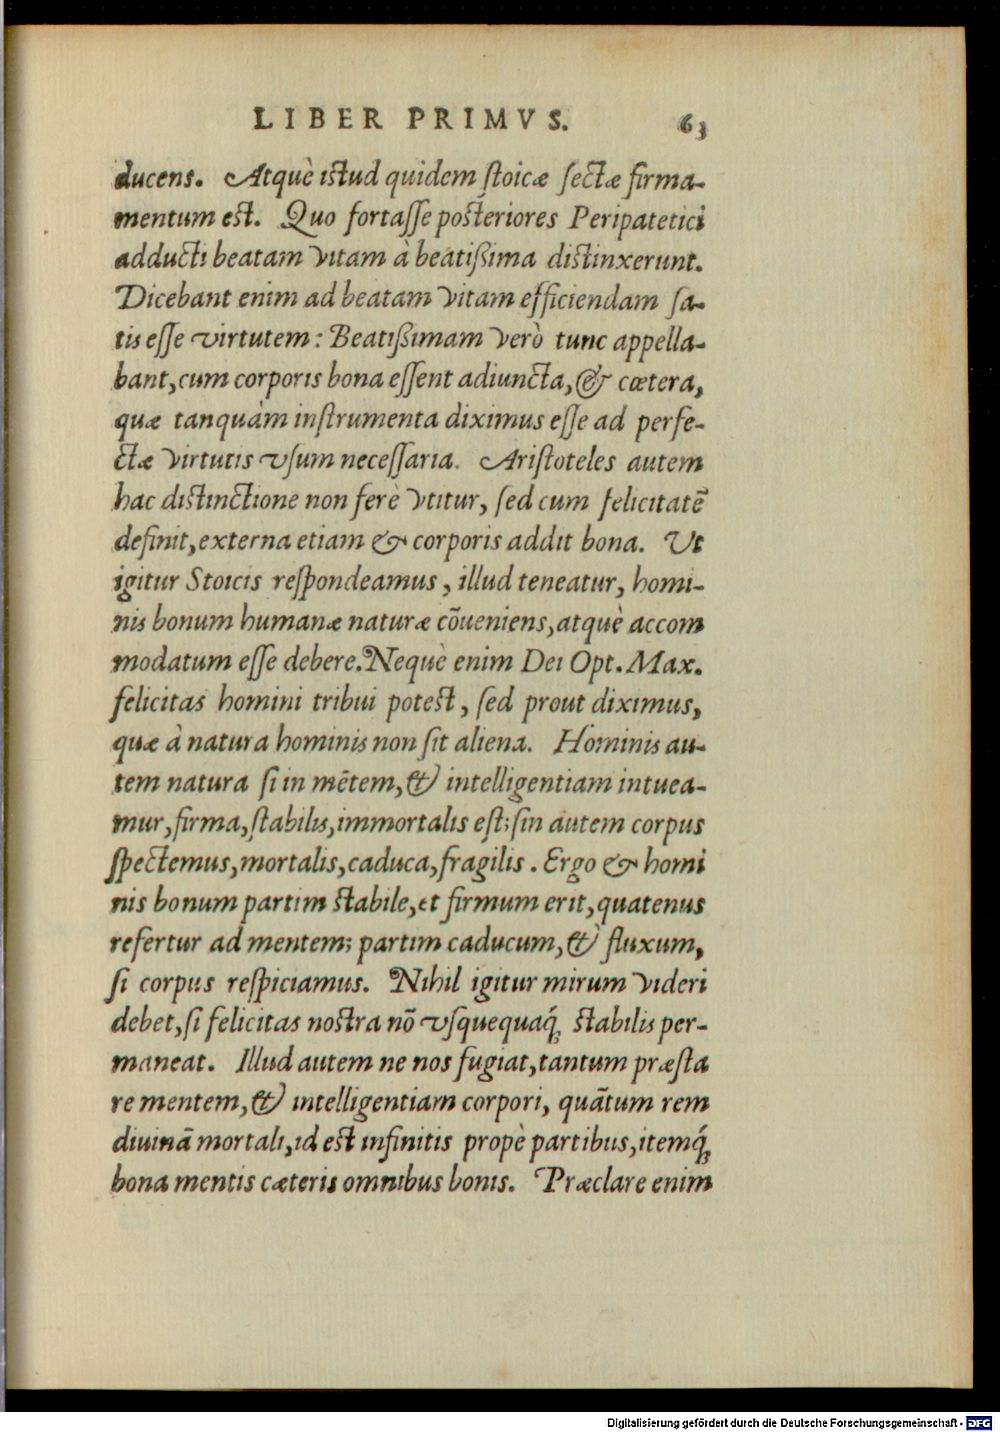 LIBER PRIMVS. 63
ducens. Atquè istud quidem stoicæ sectæ firma-
mentum est. Quo fortasse posteriores Peripatetici
adducti beatam vitam à beatißima distinxerunt.
Dicebant enim ad beatam vitam efficiendam sa-
tis esse virtutem: Beatißimam verò tunc appella-
bant, cum corporis bona essent adiuncta, & cœtera,
quæ tanquàm instrumenta diximus esse ad perfe-
ctæ virtutis vsum necessaria. Aristoteles autem
hac distinctione non ferè vtitur, sed cum felicitatē
definit, externa etiam & corporis addit bona. Ut
igitur Stoicis respondeamus, illud teneatur, homi-
nis bonum humanæ naturæ cōueniens, atquè accom
modatum esse debere. Nequè enim Dei Opt. Max.
felicitas homini tribui potest, sed prout diximus,
quæ à natura hominis non sit aliena. Hominis au-
tem natura si in mētem, & intelligentiam intuea-
mur, firma, stabilis, immortalis est; sin autem corpus
spectemus, mortalis, caduca, fragilis. Ergo & homi
nis bonum partim stabile, et firmum erit, quatenus
refertur ad mentem; partim caducum, & fluxum,
si corpus respiciamus. Nihil igitur mirum videri
debet, si felicitas nostra nō vsquequaq́; stabilis per-
maneat. Illud autem ne nos fugiat, tantum præsta
re mentem, & intelligentiam corpori, quātum rem
diuinā mortali, id est infinitis propè partibus, itemq́;
bona mentis cæteris omnibus bonis. Præclare enim
Digitalisierung gefördert durch die Deutsche Forschungsgemeinschaft - DFG